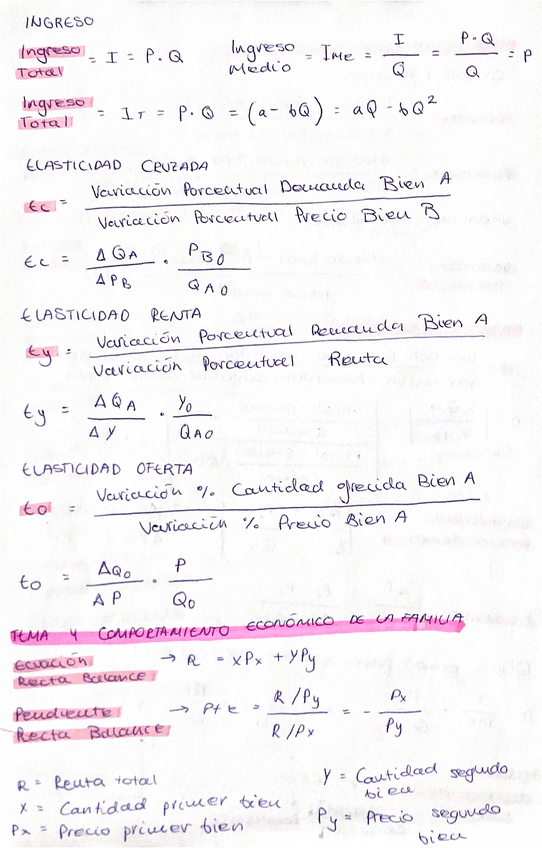 INGRESO
Ingreso Total = I = P · Q    Ingreso Medio = IMe = I / Q = P · Q / Q = P
Ingreso Total = IT = P · Q = (a - bQ) = aQ - bQ²
ELASTICIDAD CRUZADA
Ec = Variación Porcentual Demanda Bien A / Variación Porcentual Precio Bien B
Ec = ΔQA / ΔPB · PB0 / QA0
ELASTICIDAD RENTA
Ey = Variación Porcentual Demanda Bien A / Variación Porcentual Renta
Ey = ΔQA / ΔY · Y0 / QA0
ELASTICIDAD OFERTA
Eo = Variación % Cantidad ofrecida Bien A / Variación % Precio Bien A
Eo = ΔQo / ΔP · P / Qo
TEMA 4 COMPORTAMIENTO ECONÓMICO DE LA FAMILIA
Ecuación Recta Balance → R = xPx + yPy
Pendiente Recta Balance → Pte = R/Py / R/Px = - Px / Py
R = Renta total
X = Cantidad primer bien
Px = Precio primer bien
Y = Cantidad segundo bien
Py = Precio segundo bien